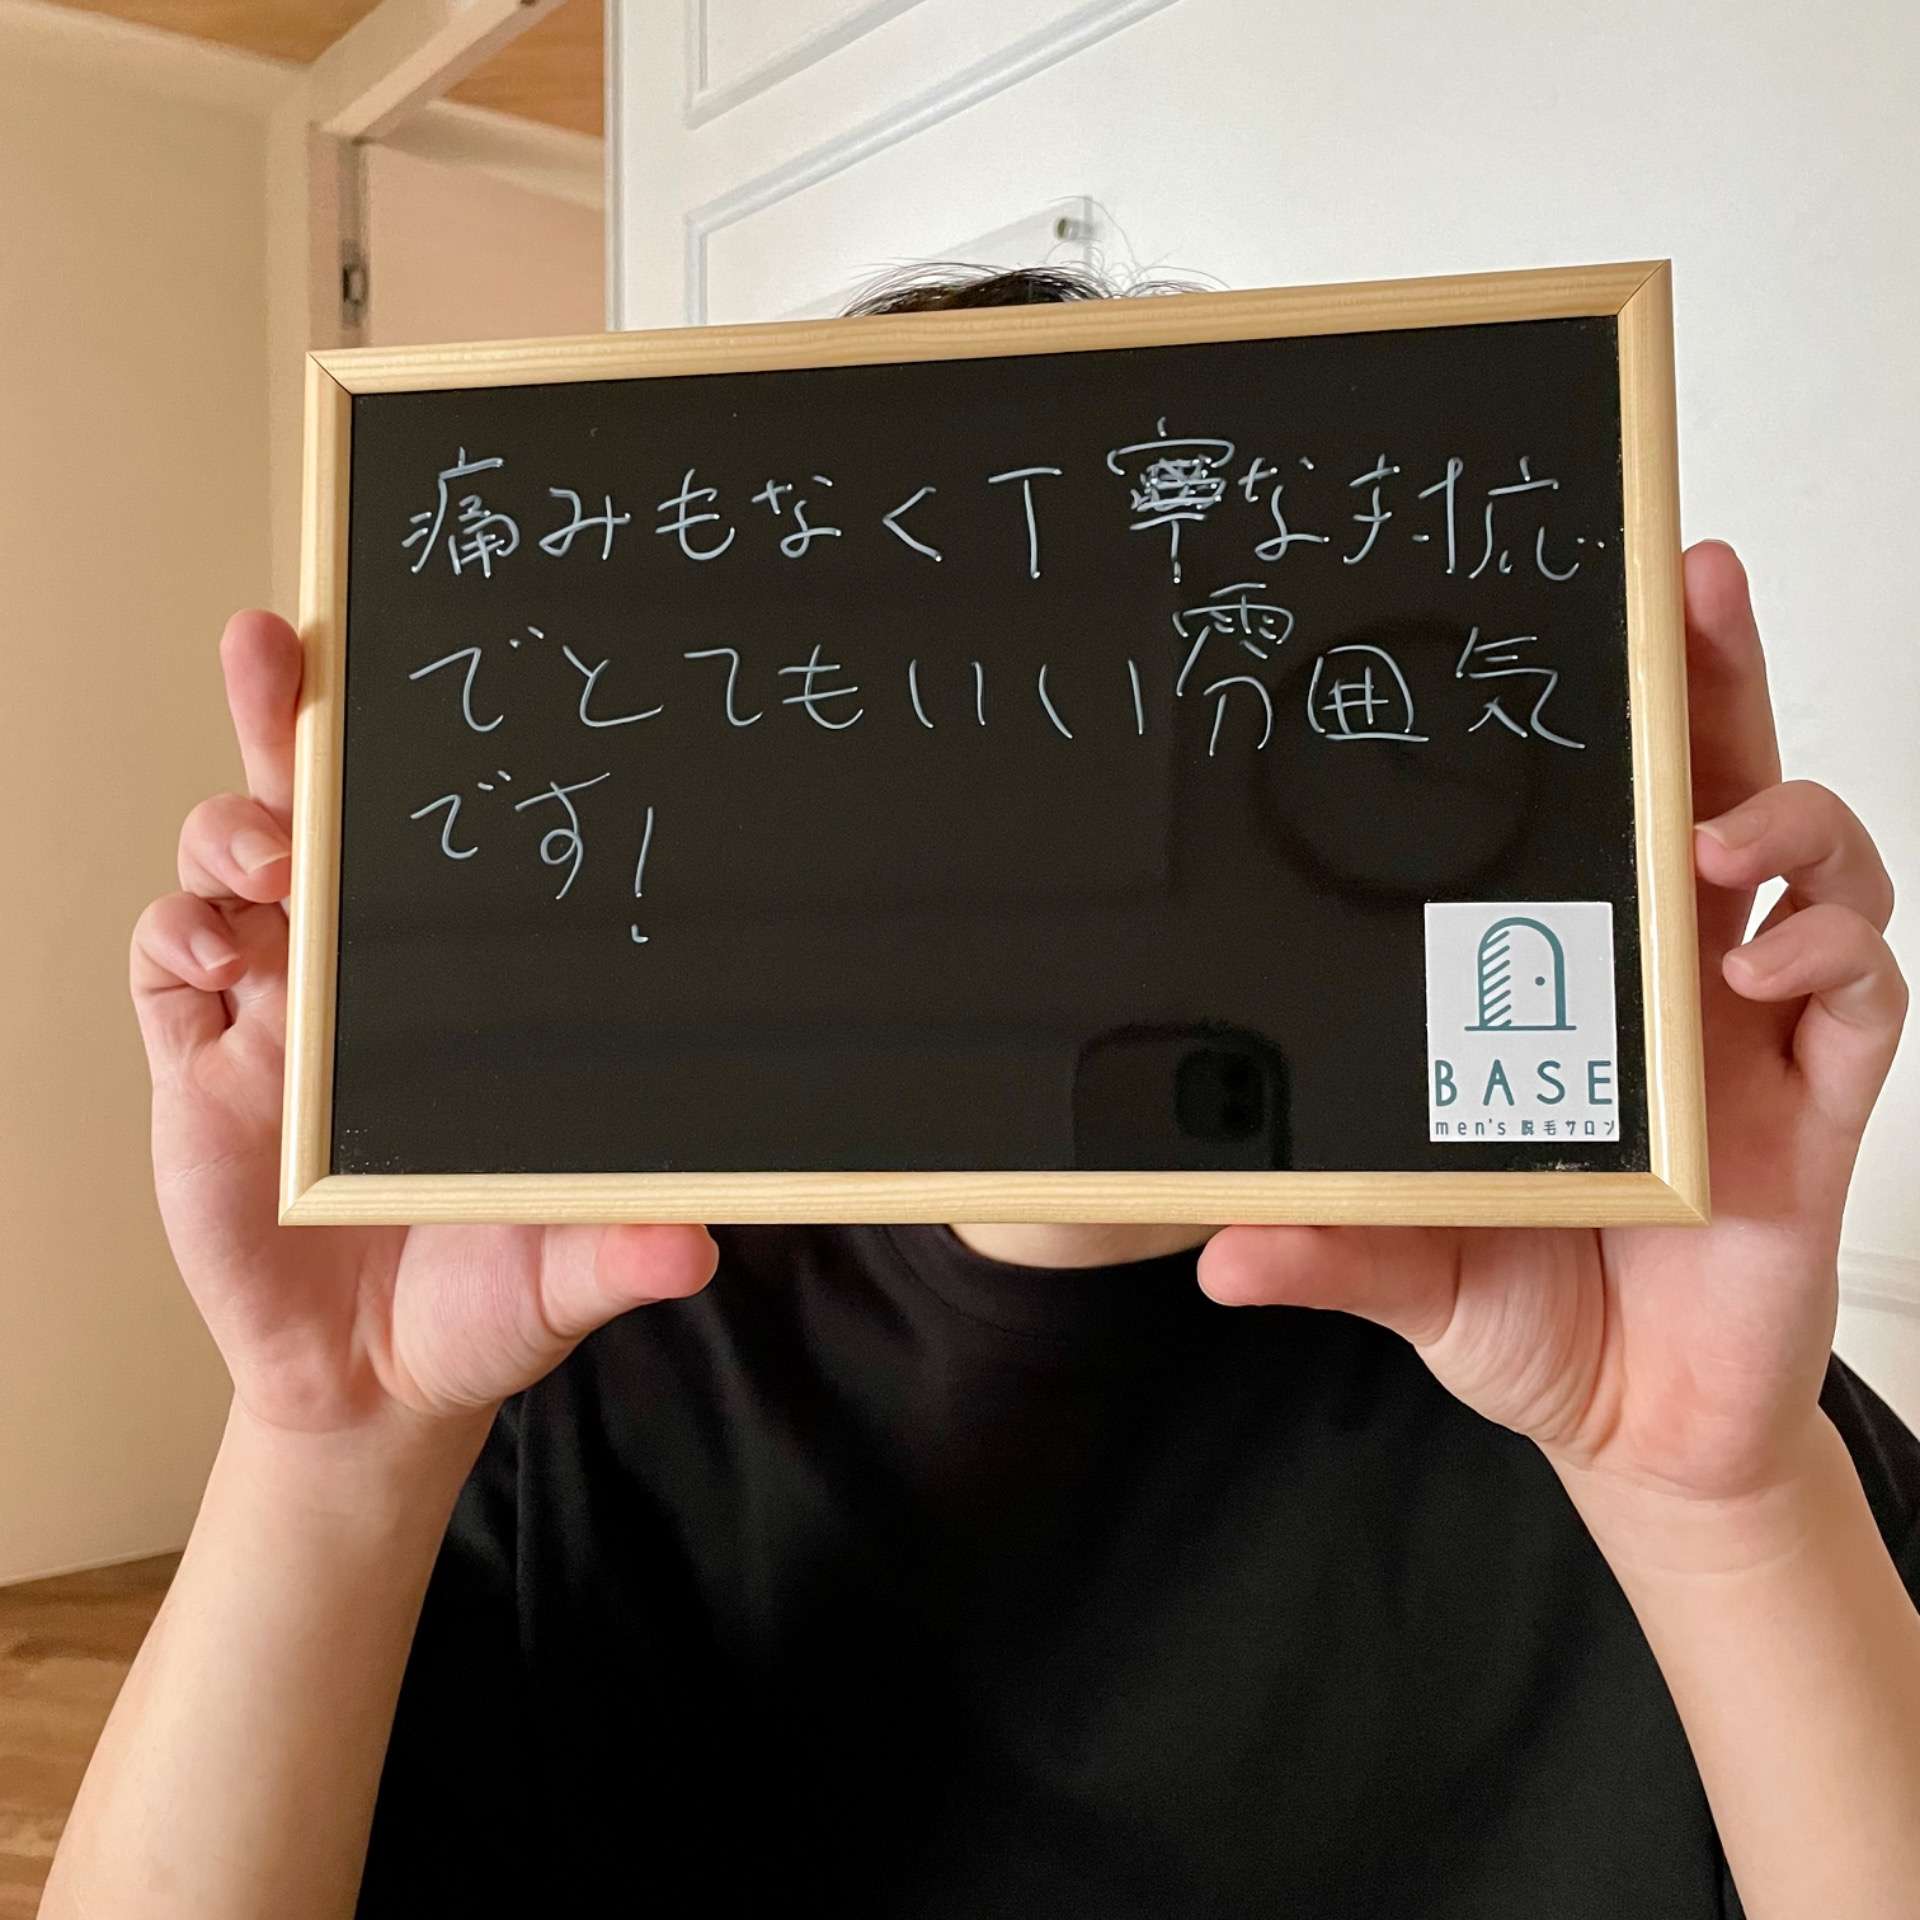 痛みもなく丁寧な対応
でとてもいい雰囲気
です!
BASE
men's 脱毛サロン